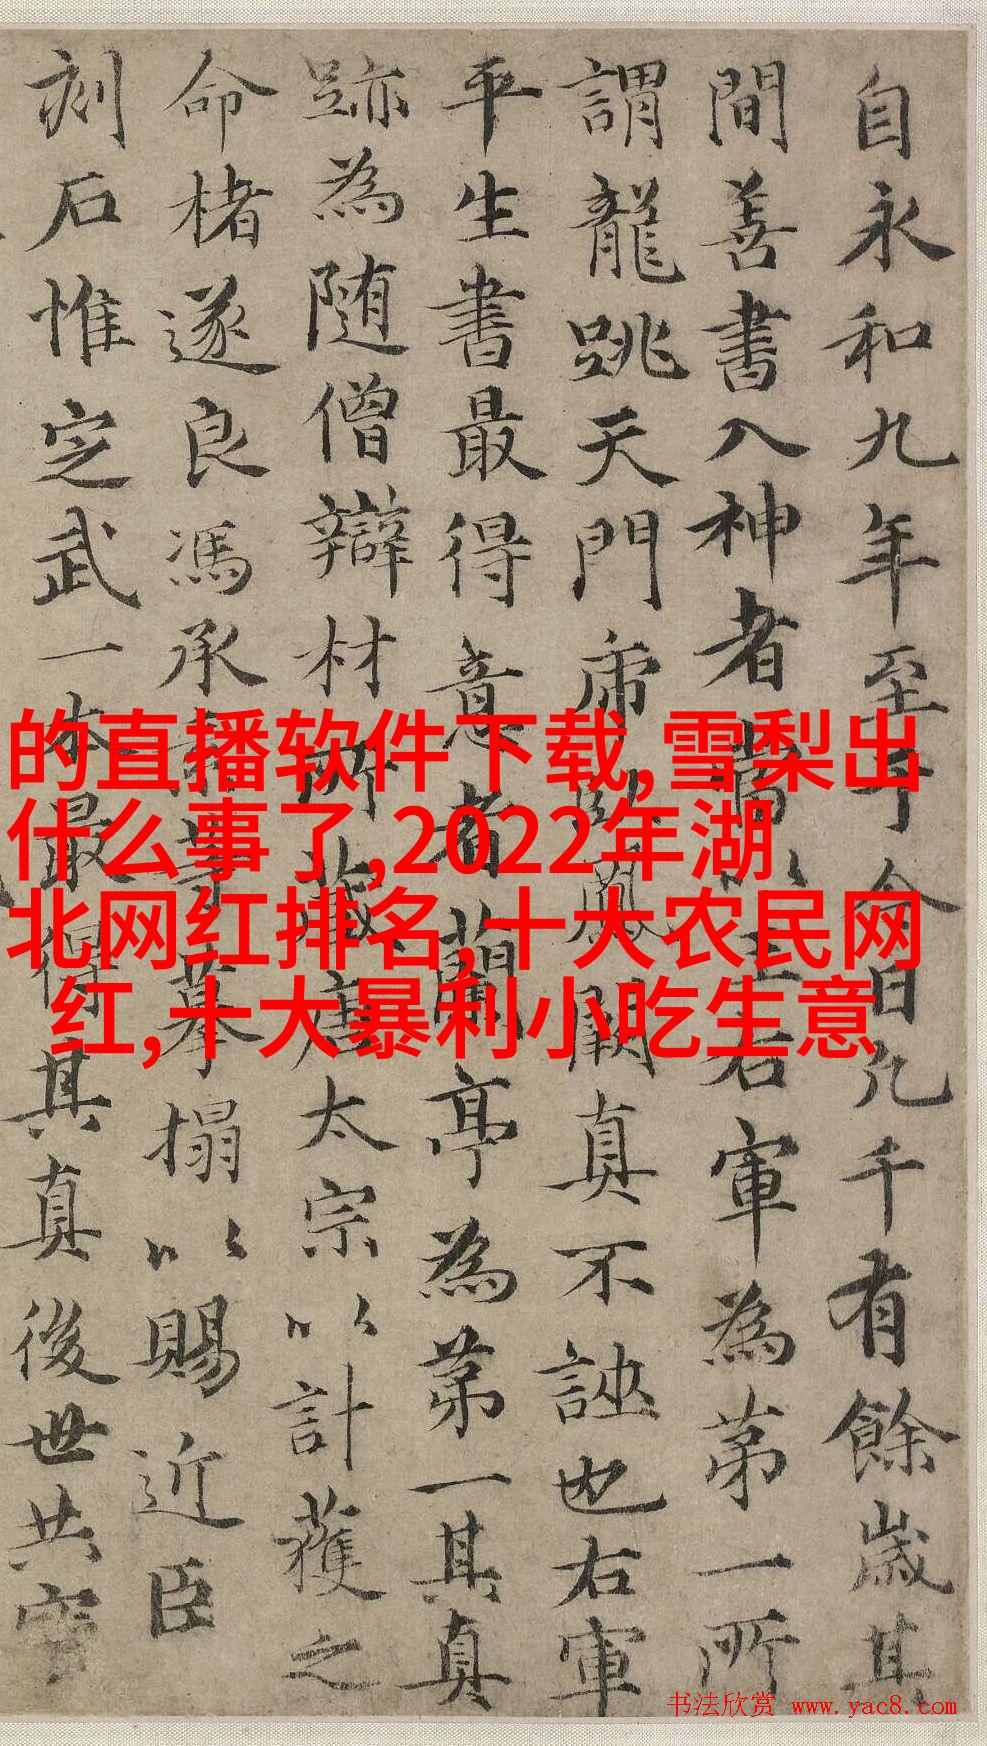 自永和九年至于今日凡千有餘歲其
間善書入神者當以王右軍為第一所
謂龍跳天門虎臥鳳闕真不誣也右軍
平生書最得意者蘭亭為第一其真
跡為随僧辯材所藏唐太宗以計獲之
命楮遂良馮承素等摹搨以賜近臣
刻石惟定武一本最得其真後世共寳
的直播软件下载,雪梨出
什么事了,2022年湖
北网红排名,十大农民网
红,十大暴利小吃生意
书法欣赏 www.yac8.com